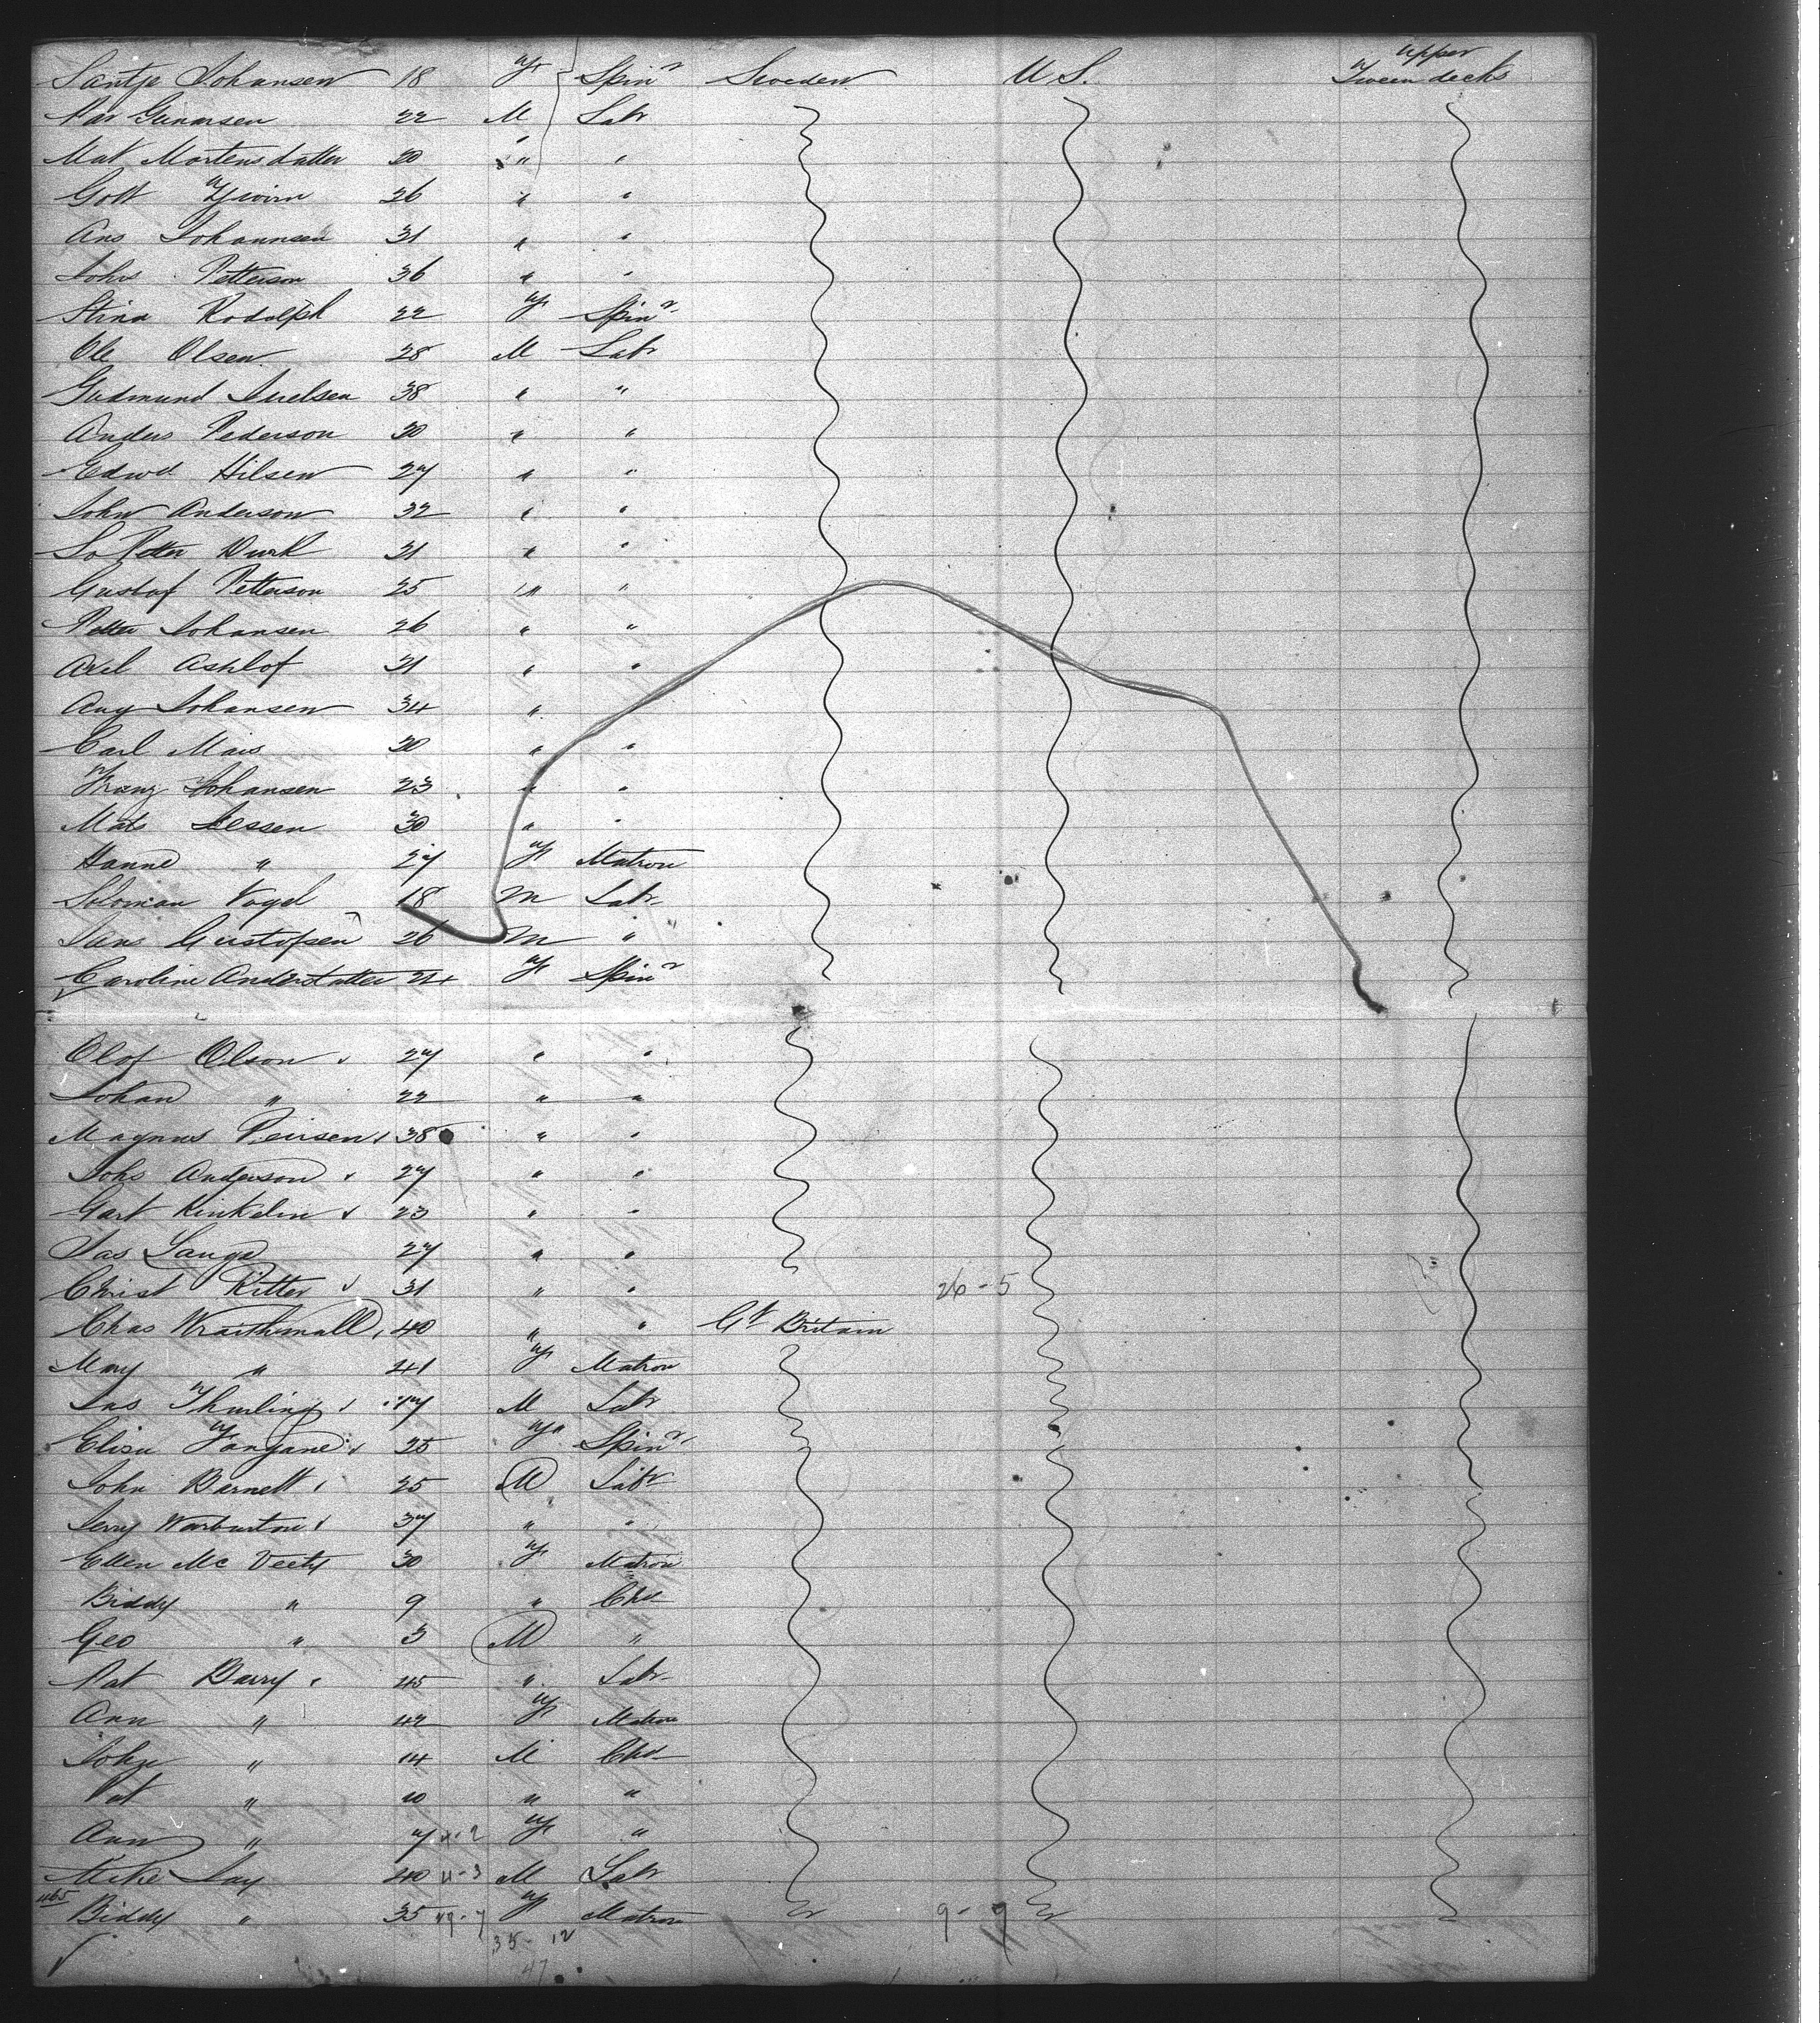 Santje Johansen 18 F Spinr Sweden U S. Upper Tween decks
Par Gunarsen 22 M Labr
Mat Mortensdatter 20 " "
Gott 26 " "
Ans Johannsen 31 " "
Johs Petterson 36 " "
Stina Rodolph 22 F Spinr
Ole Olsen 28 M Labr
Gudmund 38 " "
Anders Pederson 30 " "
Edwd Hilsen 27 " "
John Anderson 32 " "
Petter 31 " "
Gustaf Petterson 25 " "
Petter Johansen 26 " "
Axel Ashlof 31 " "
Aug Johansen 34 "
Carl Mais 30 " "
Franz Johansen 23 " "
Mats Jessen 30 " "
Hanne " 27 F Matron
Soloman Vogel 18 M Labr
Jans Gustofsen 26 M "
Caroline Anderstatter 24 F Spinr
Olof Olson 27 " "
Johan " 22 " "
Magnus Peirsen 38 " "
Johs Anderson 27 " "
Gart Kinkelin 23 " "
Jas Lange 27 " "
Christ Ritter 31 " " 26-5
Chas Wraithmall 40 " " Gt Britain
Mary " 41 F Matron
Jas Thurling 17 M Labr
Eliza 25 F Spinr
John Barnett 25 M Labr
Jerry Warburton 37 " "
Ellen Mc Veety 30 F Matron
Biddy " 9 " Chd
Geo " 3 M "
Pat Barry 45 " Labr
Ann " 42 F Matron
John " 14 M Chd
Pat " 10 " "
Ann " 7 F "
Mike Jay 40 11-3 M Labr
465
Biddy " 35 F Matron 9-9
35-12
47